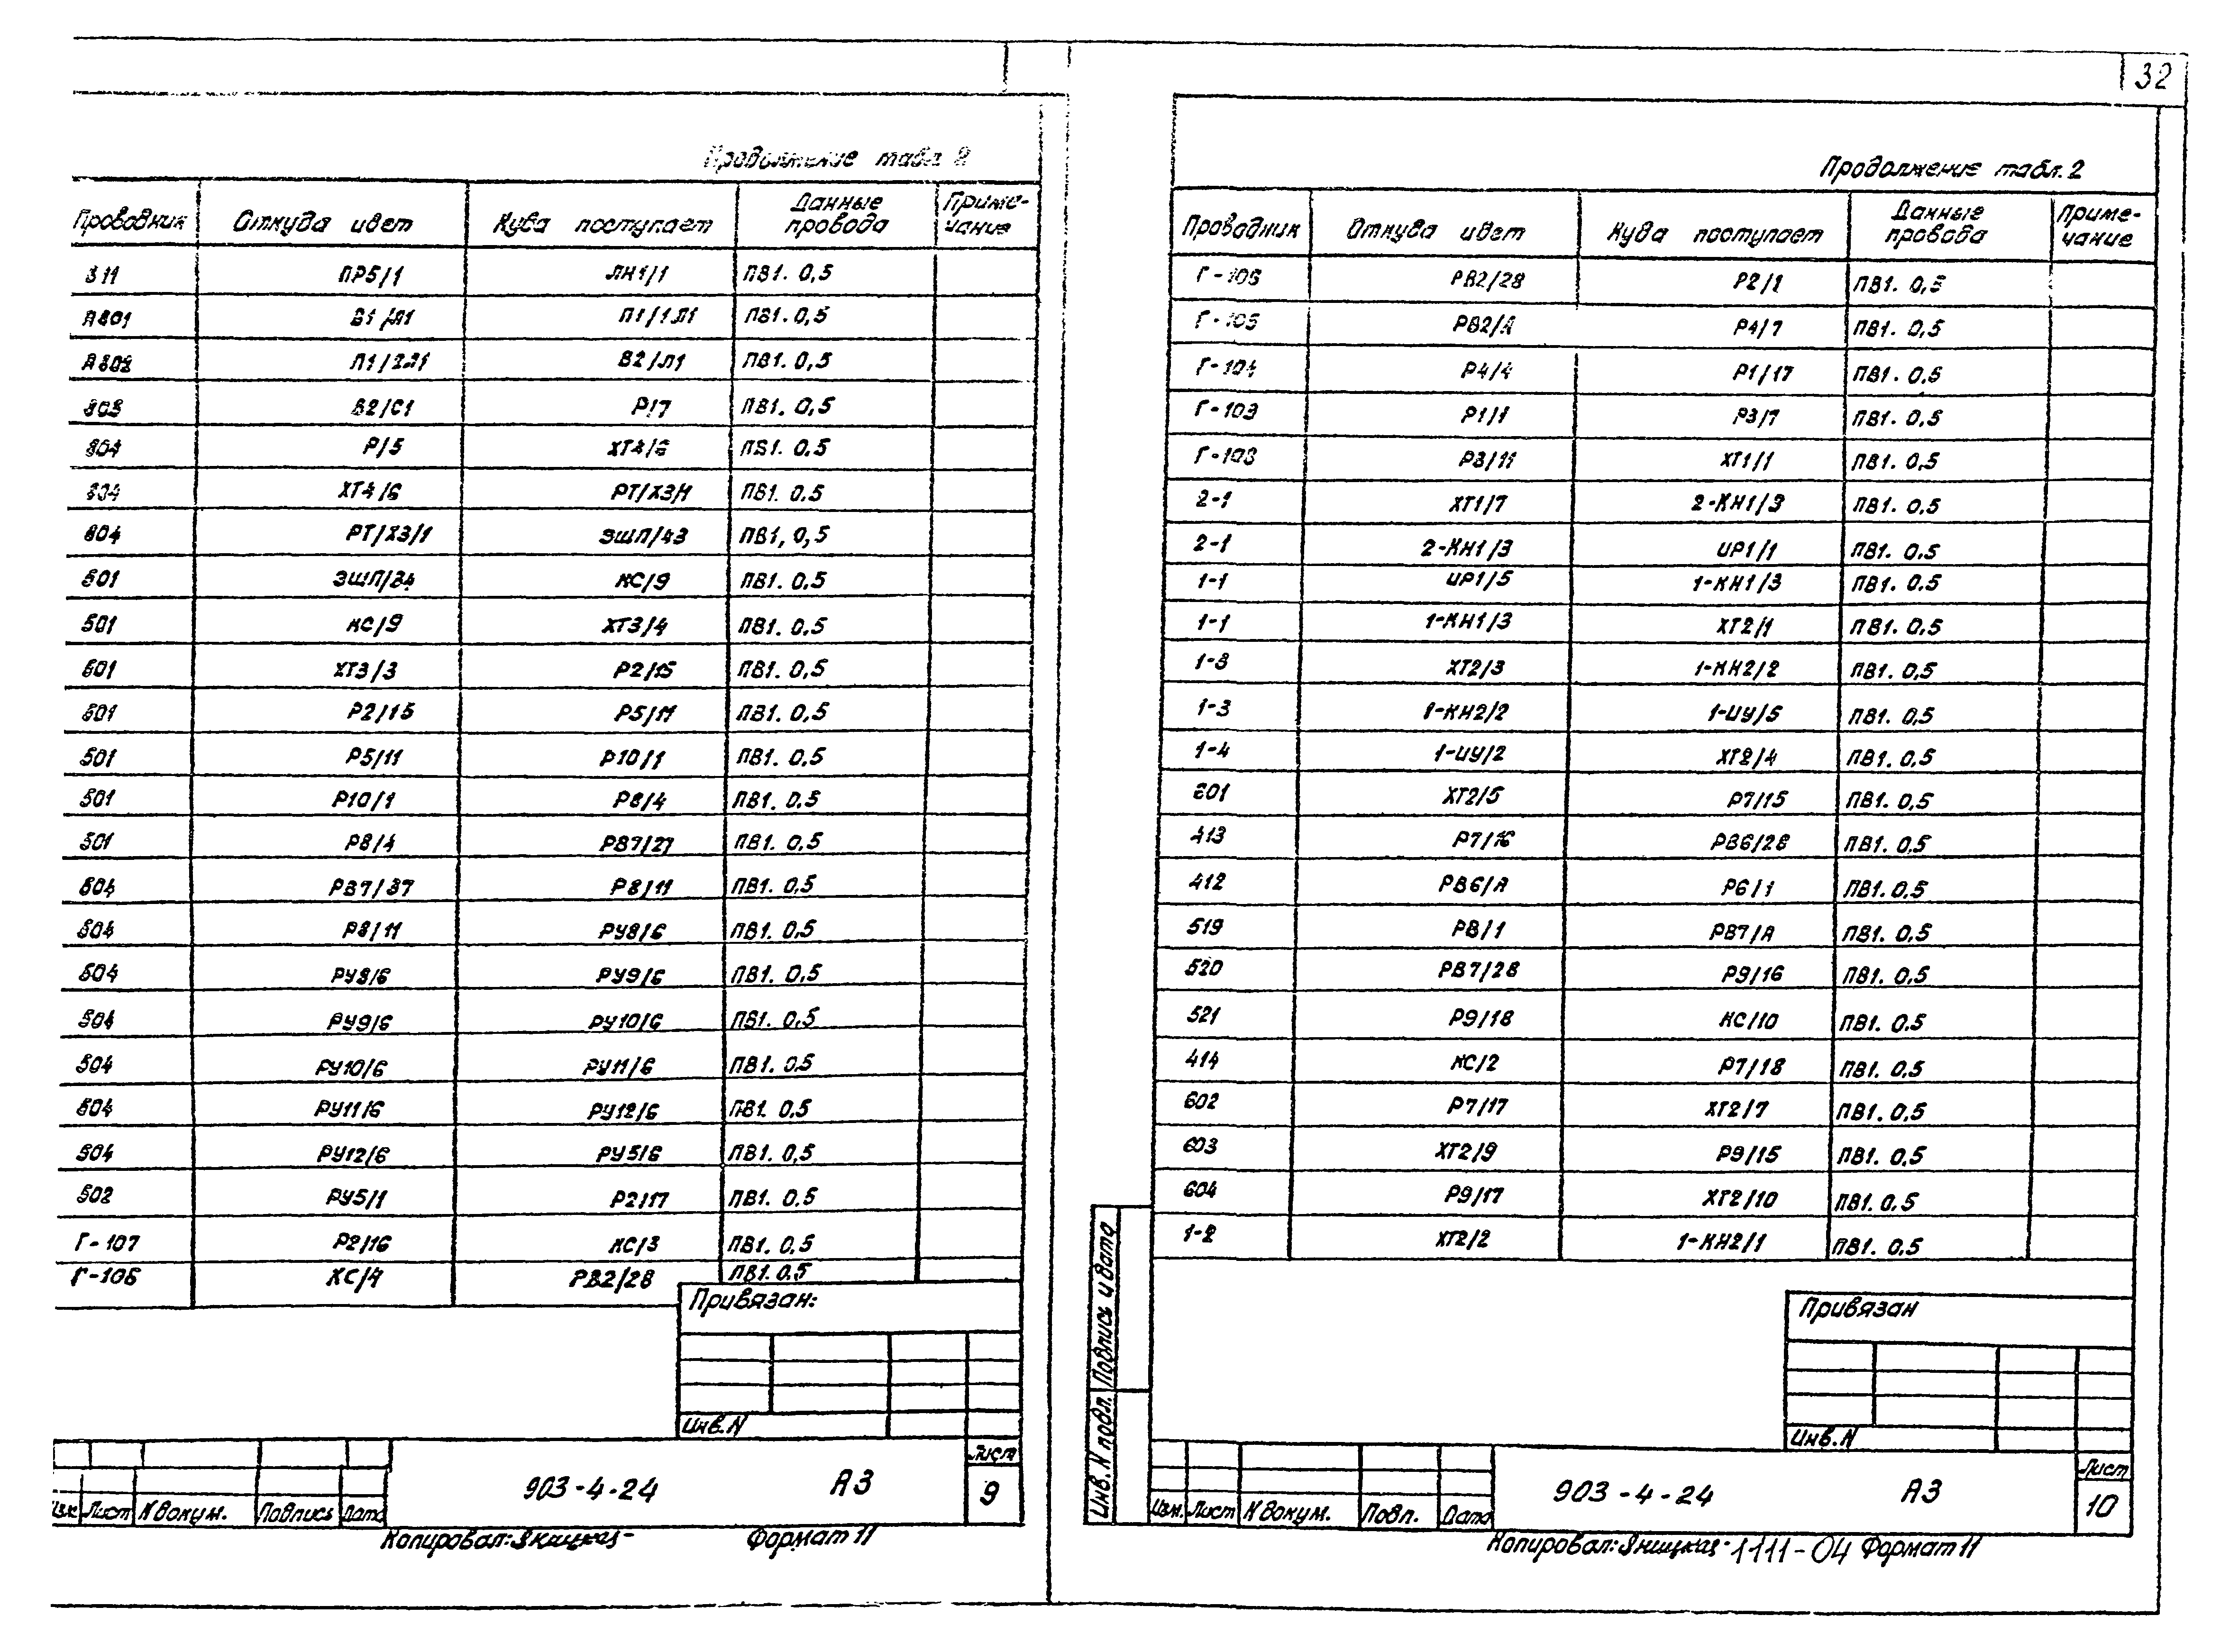 32
Продолжение табл. 2
Проводник Откуда идет Куда поступает Данные провода Приме-чание
311 ПР5/1 ЛН1/1 ПВ1. 0,5
А801 В1/Л1 П1/1Л1 ПВ1. 0,5
А802 П1/2Л1 В2/Л1 ПВ1. 0,5
803 В2/С1 Р/7 ПВ1. 0,5
804 Р/5 ХТ4/6 ПВ1. 0,5
804 ХТ4/6 РТ/Х3/1 ПВ1. 0,5
804 РТ/Х3/1 ЭШП/43 ПВ1, 0,5
501 ЭШП/34 КС/9 ПВ1. 0,5
501 КС/9 ХТ3/4 ПВ1. 0,5
501 ХТ3/3 Р2/15 ПВ1. 0,5
501 Р2/15 Р5/11 ПВ1. 0,5
501 Р5/11 Р10/1 ПВ1. 0,5
501 Р10/1 Р8/4 ПВ1. 0,5
501 Р8/4 РВ7/27 ПВ1. 0,5
504 РВ7/37 Р8/11 ПВ1. 0,5
504 Р8/11 РУ8/6 ПВ1. 0,5
504 РУ8/6 РУ9/6 ПВ1. 0,5
504 РУ9/6 РУ10/6 ПВ1. 0,5
504 РУ10/6 РУ11/6 ПВ1. 0,5
504 РУ11/6 РУ12/6 ПВ1. 0,5
504 РУ12/6 РУ5/6 ПВ1. 0,5
502 РУ5/1 Р2/17 ПВ1. 0,5
Г-107 Р2/16 КС/3 ПВ1. 0,5
Г-106 КС/4 РВ2/28 ПВ1. 0,5
Привязан:
Инв. N
Изм. Лист N докум. Подпись Дата
903-4-24 А3
Лист
9
Копировал: Яницкая Формат 11
Продолжение табл. 2
Проводник Откуда идет Куда поступает Данные провода Приме-чание
РВ2/28 Р2/1 ПВ1. 0,5
Г-105 РВ2/А Р4/7 ПВ1. 0,5
Г-104 Р4/4 Р1/17 ПВ1. 0,5
Г-103 Р1/1 Р3/7 ПВ1. 0,5
Г-103 Р3/11 ХТ1/1 ПВ1. 0,5
2-1 ХТ1/7 2-КН1/3 ПВ1. 0,5
2-1 2-КН1/3 ИР1/1 ПВ1. 0,5
1-1 ИР1/5 1-КН1/3 ПВ1. 0,5
1-1 1-КН1/3 ХТ2/1 ПВ1. 0,5
1-3 ХТ2/3 1-КН2/2 ПВ1. 0,5
1-3 1-КН2/2 1-ИУ/5 ПВ1. 0,5
1-4 1-ИУ/2 ХТ2/4 ПВ1. 0,5
601 ХТ2/5 Р7/15 ПВ1. 0,5
413 Р7/16 РВ6/28 ПВ1. 0,5
412 РВ6/А Р6/1 ПВ1. 0,5
519 Р8/1 РВ7/А ПВ1. 0,5
520 РВ7/28 Р9/16 ПВ1. 0,5
521 Р9/18 КС/10 ПВ1. 0,5
414 КС/2 Р7/18 ПВ1. 0,5
602 Р7/17 ХТ2/7 ПВ1. 0,5
603 ХТ2/9 Р9/15 ПВ1. 0,5
604 Р9/17 ХТ2/10 ПВ1. 0,5
1-2 ХТ2/2 1-КН2/1 ПВ1. 0,5
Привязан
Инв. N
Инв. N подл. Подпись и дата
Изм. Лист N докум. Подп. Дата
903-4-24 А3
Лист
10
Копировал: Яницкая 1111-04 Формат 11